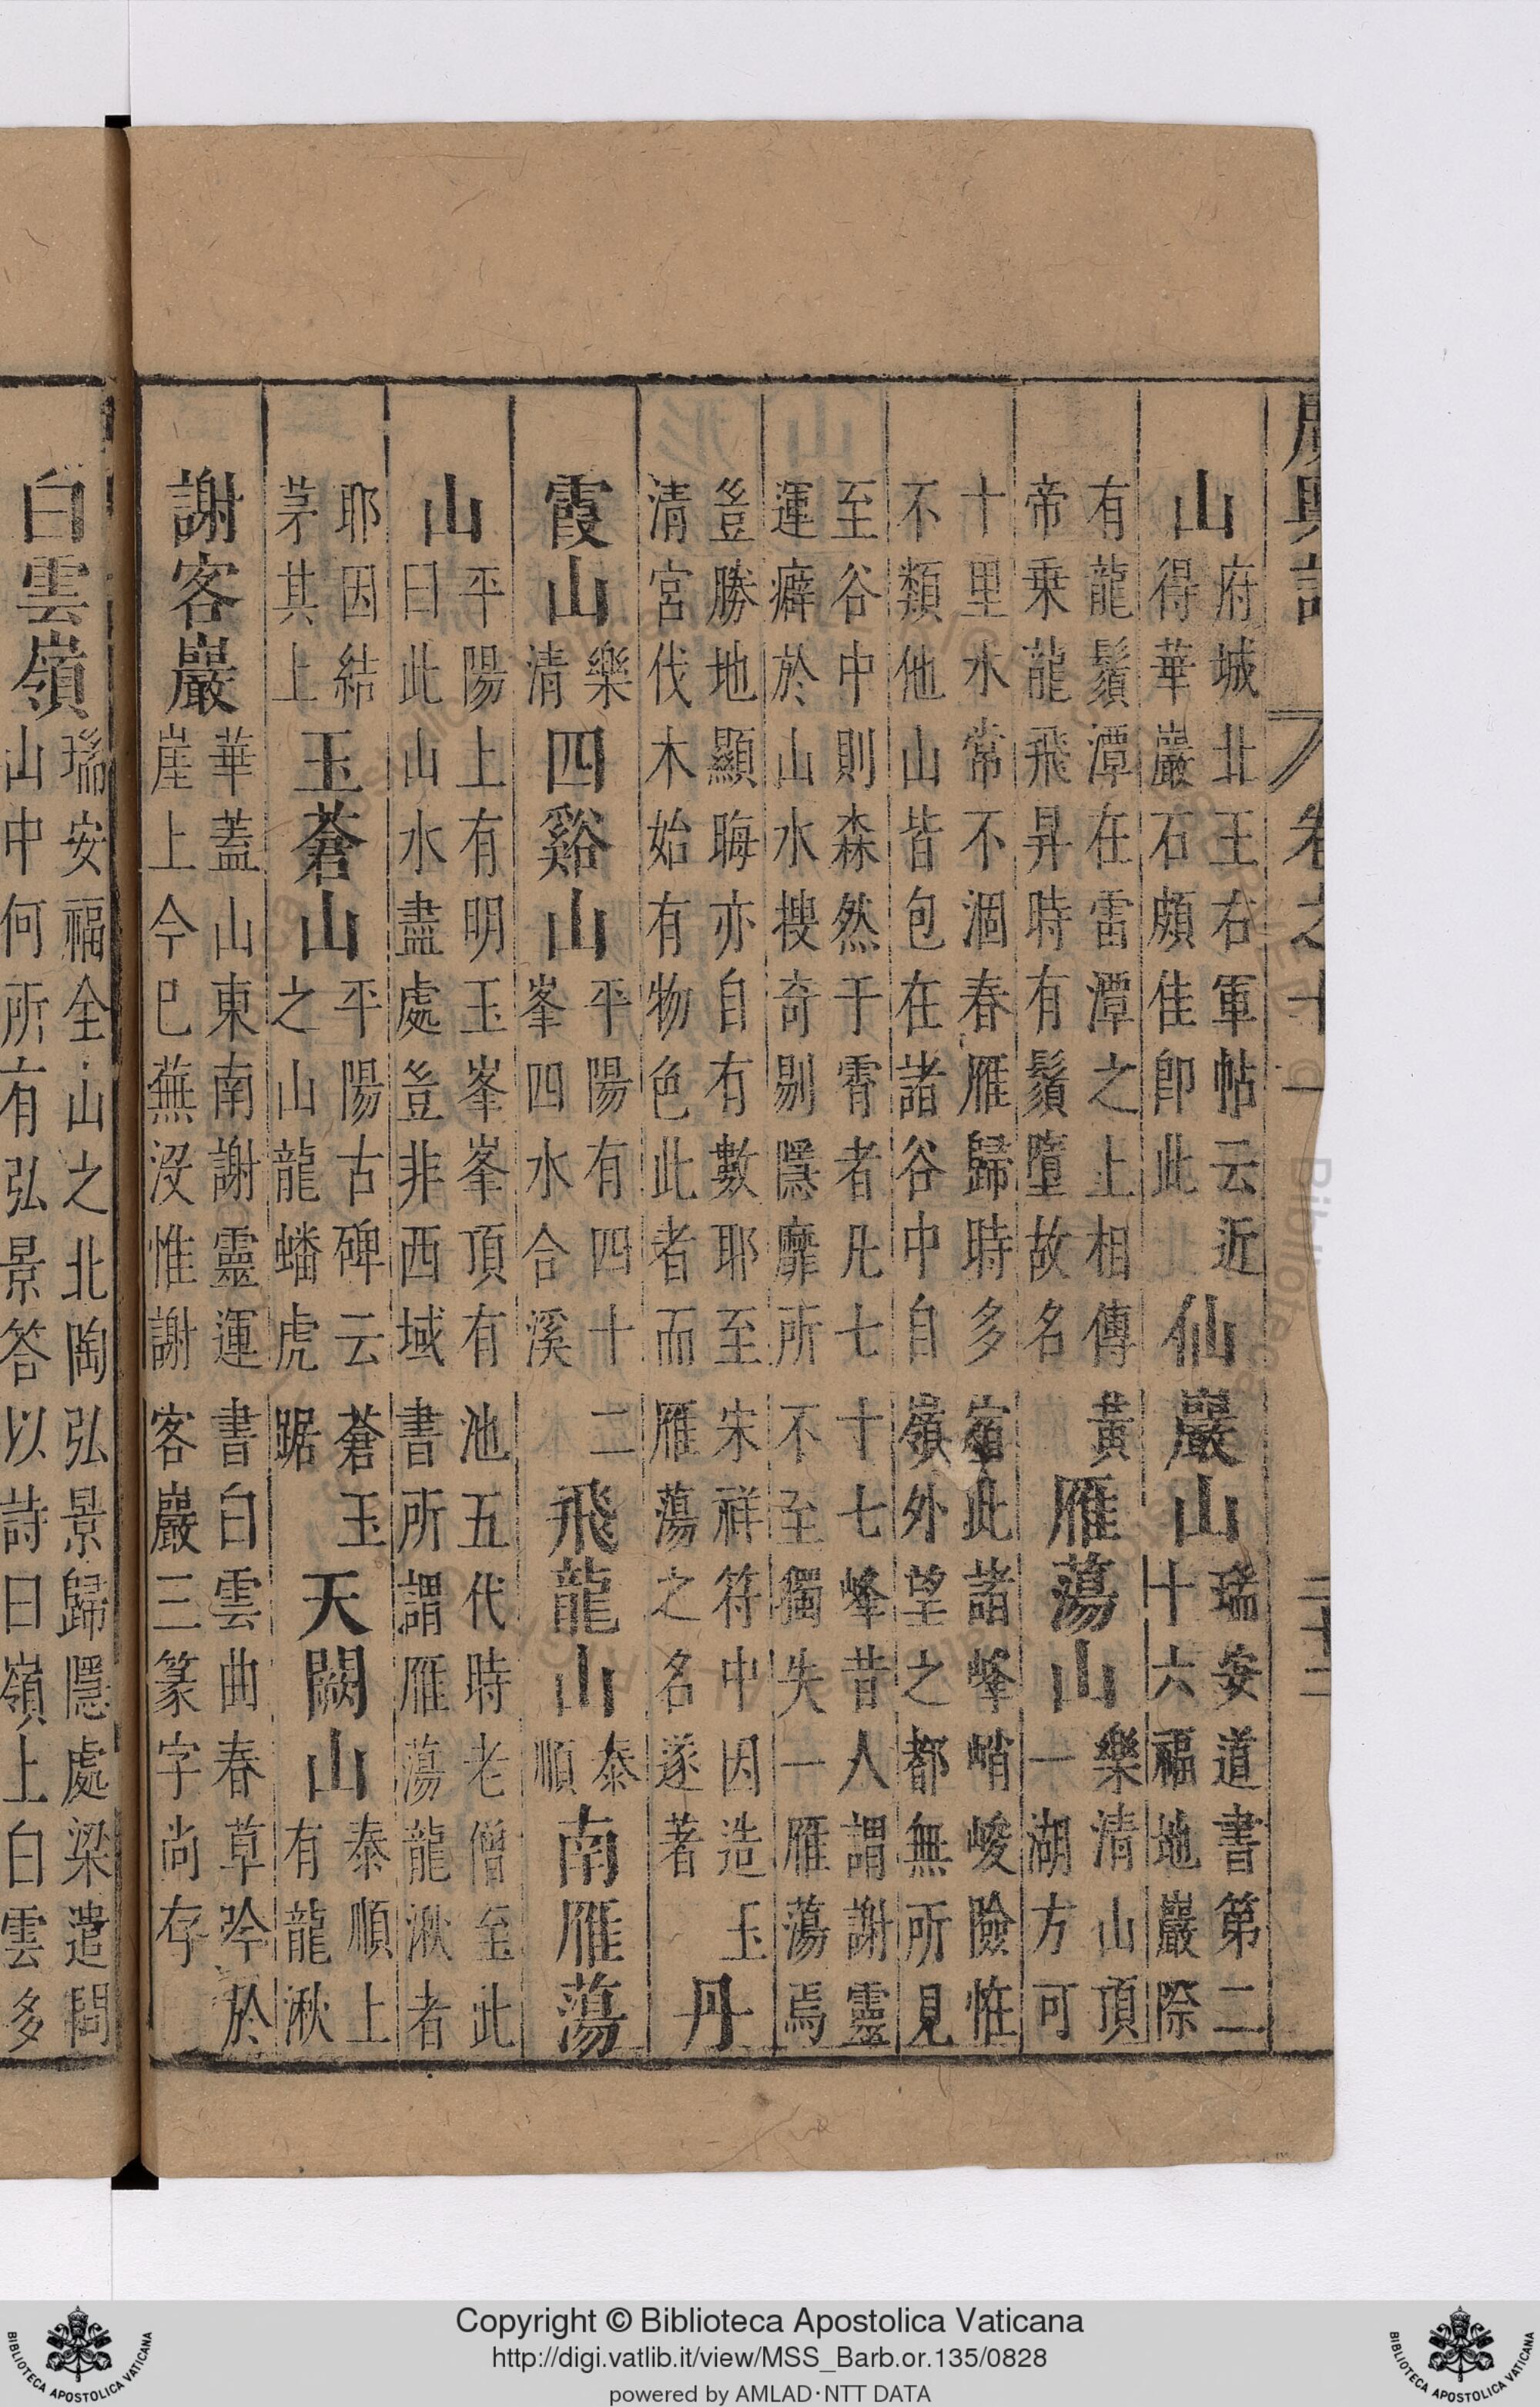 廣輿記 卷之十一 二十二
山府城北王右軍帖云近得華巖石頗佳卽此仙巖山瑞安道書第二十六福地巖際
有龍鬚潭在雷潭之上相傳黃帝乘龍飛昇時有鬚墮故名雁蕩山樂清山頂一湖方可
十里水常不涸春雁歸時多宿此諸峰峭峻險恠
不類他山皆包在諸谷中自嶺外望之都無所見
至谷中則森然于霄者凡七十七峰昔人謂謝靈
運癖於山水搜奇剔隱靡所不至獨失一雁蕩焉
豈勝地顯晦亦自有數耶至宋祥符中因造玉
清宮伐木始有物色此者而雁蕩之名遂著丹
霞山樂清四谿山平陽有四十二峯四水合溪飛龍山泰順南雁蕩
山平陽上有明玉峯峯頂有池五代時老僧至此
曰此山水盡處豈非西域書所謂雁蕩龍湫者
耶因結茅其上玉蒼山平陽古碑云蒼玉之山龍蟠虎踞天闕山泰順上有龍湫
謝客巖華蓋山東南謝靈運書白雲曲春草吟於
崖上今已蕪沒惟謝客巖三篆字尚存
白雲嶺瑞安福全山之北陶弘景歸隱處梁遣問
山中何所有弘景答以詩曰嶺上白雲多
Copyright © Biblioteca Apostolica Vaticana
http://digi.vatlib.it/view/MSS_Barb.or.135/0828
powered by AMLAD·NTT DATA
BIBLIOTECA APOSTOLICA VATICANA
BIBLIOTECA APOSTOLICA VATICANA